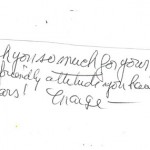 k you so much for your
friendly attitude you have
ars!